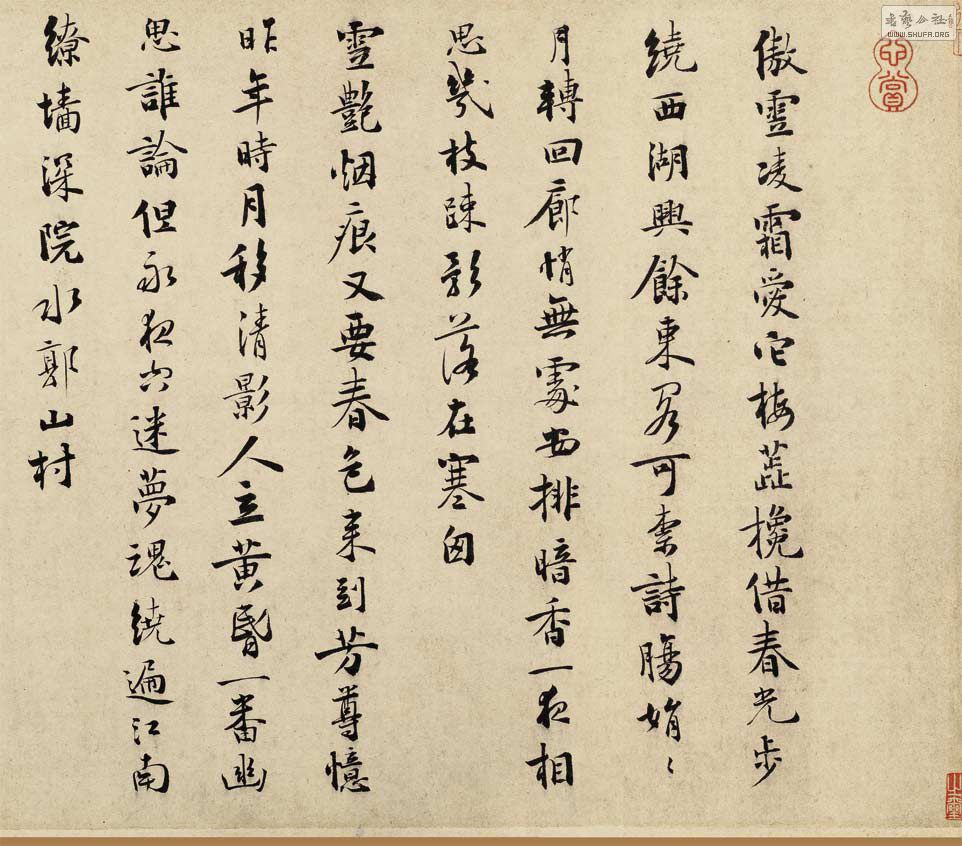 傲雪凌霜愛它梅蕋攙借春光步
繞西湖興餘東閣可柰詩腸娟〻
月轉回廊悄無處安排暗香一夜相
思幾枝踈影落在寒囱
雪艷烟痕又要春色來到芳尊憶
昨年時月移清影人立黃昏一番幽
思誰論但永夜空迷夢魂繞遍江南
繚墻深院水郭山村
書藝公社
WWW.SHUFA.ORG